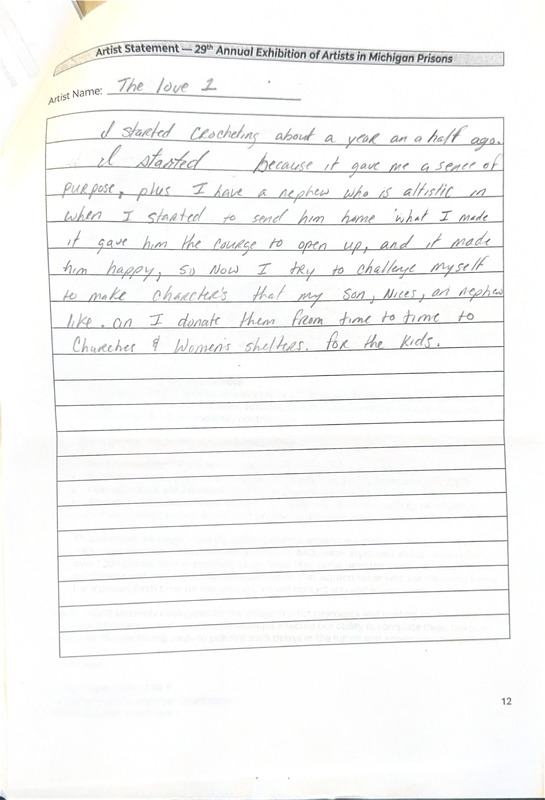 Artist Statement — 29th Annual Exhibition of Artists in Michigan Prisons
Artist Name: The love 1
I started crocheting about a year an a half ago.
I started because it gave me a sence of
purpose, plus I have a nephew who is altistic in
when I started to send him home what I made
it gave him the courge to open up, and it made
him happy, so now I try to challege myself
to make charcter's that my son, Nices, an nephew
like. an I donate them from time to time to
Churches & Women's shelters. for the kids.
12